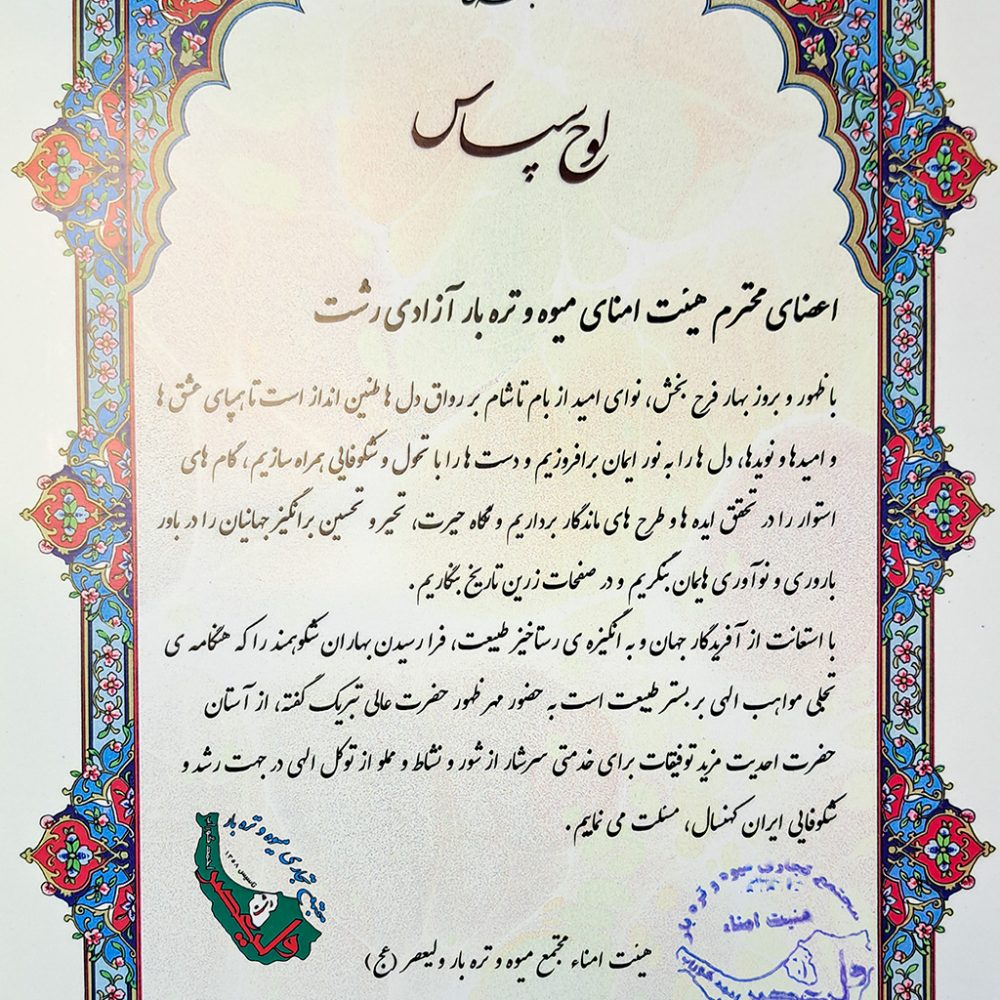 لوح سپاس
اعضای محترم هیئت امنای میوه و تره بار آزادی رشت
با ظهور و بروز بهار فرح بخش، نوای امید از بام تا شام بر رواق دل ها طنین انداز است تا همپای عشق ها
و امیدها و نویدها، دل ها را به نور ایمان برافروزیم و دست ها را با تحول و شکوفایی همراه سازیم، گام های
استوار را در تحقق ایده ها و طرح های ماندگار برداریم و نگاه حیرت، تحیر و تحسین برانگیز جهانیان را در باور
باروری و نوآوری هایمان بنگریم و در صفحات زرین تاریخ بنگاریم.
با استعانت از آفریدگار جهان و به انگیزه ی رستاخیز طبیعت، فرا رسیدن بهاران شکوهمند را که هنگامه ی
تجلی مواهب الهی بر بستر طبیعت است به حضور مهر ظهور حضرت عالی تبریک گفته، از آستان
حضرت احدیت مزید توفیقات برای خدمتی سرشار از شور و نشاط و مملو از توکل الهی در جهت رشد و
شکوفایی ایران کهنسال، مسئلت می نماییم.
مجتمع تجاری میوه و تره بار
تاسیس ۱۳۵۸
ولیعصر
مجتمع تجاری میوه و تره بار
هیئت امناء
هیئت امناء مجتمع میوه و تره بار ولیعصر (عج)